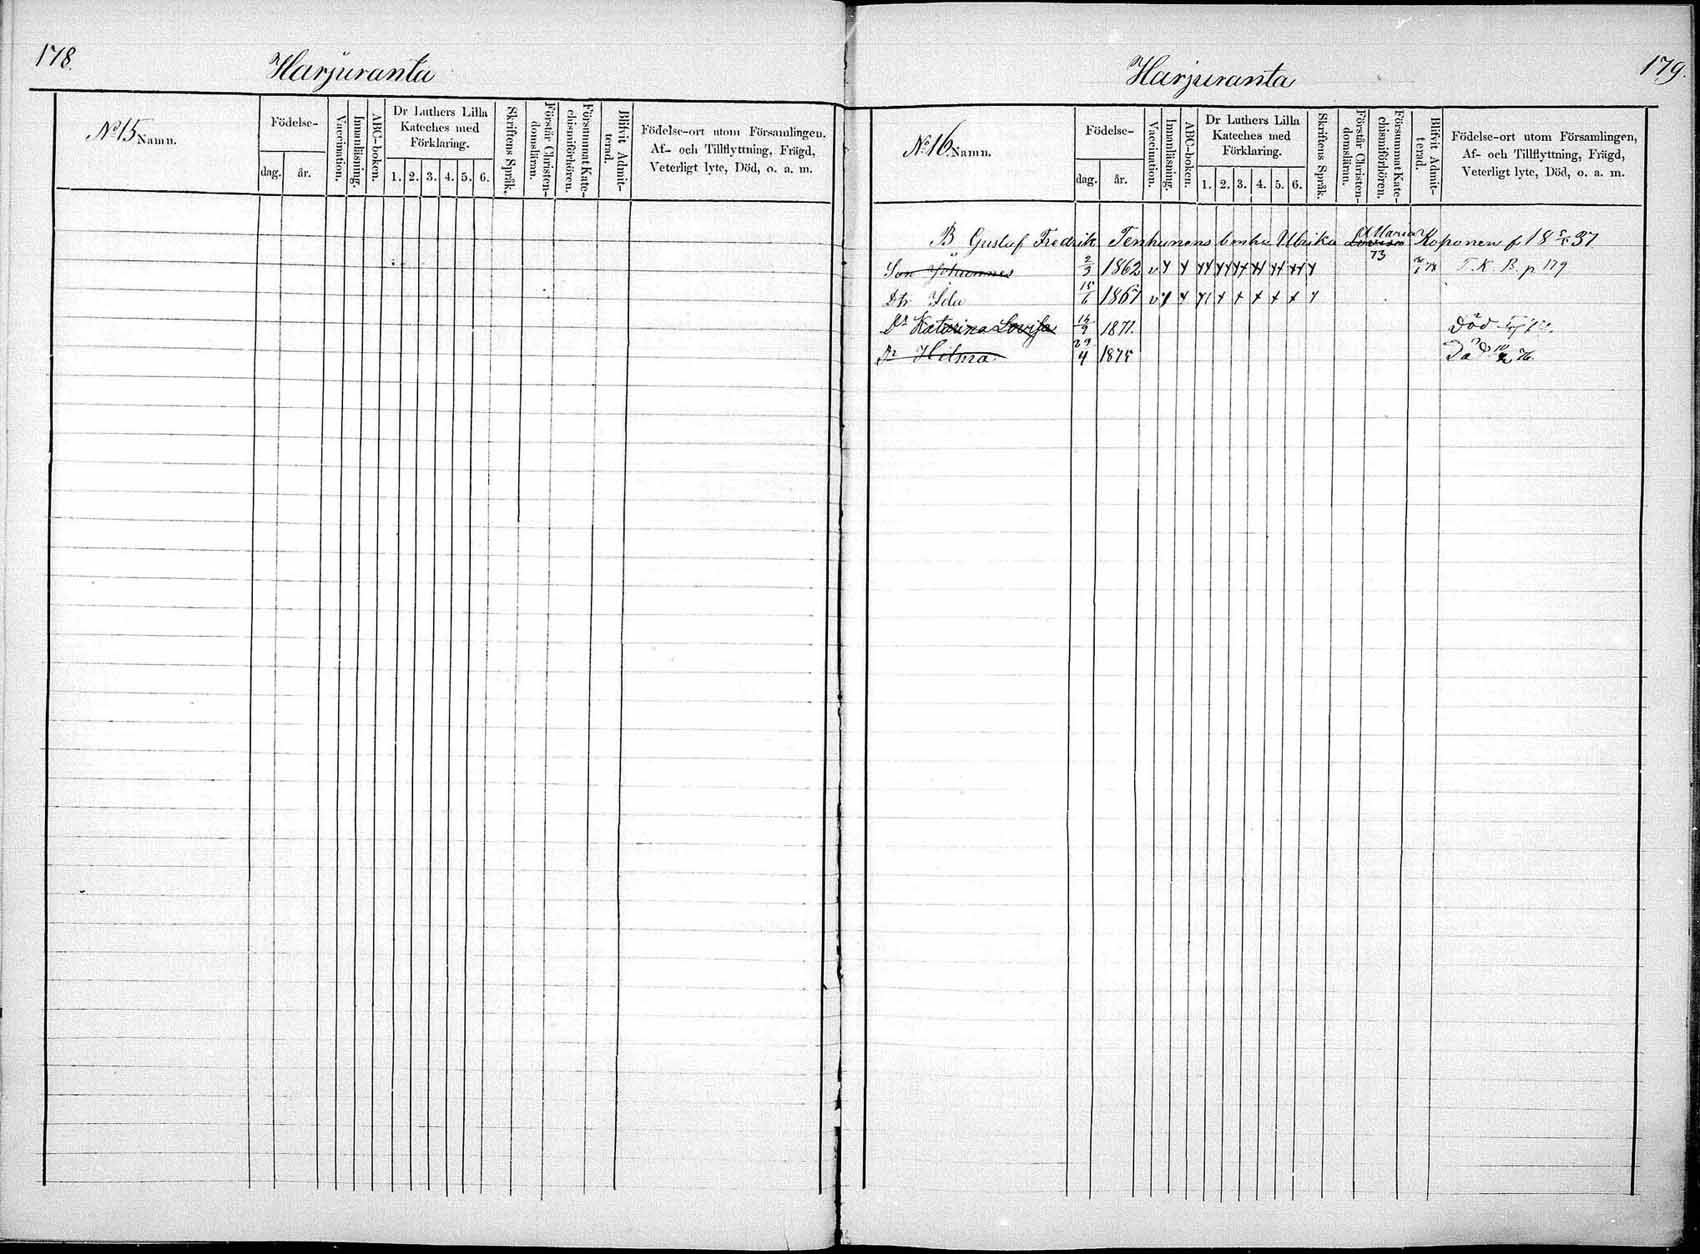 178.
Harjuranta
No 15 Namn.
Födelse-
dag.
år.
Vaccination.
Innanläsning.
ABC-boken.
Dr Luthers Lilla
Kateches med
Förklaring.
1. 2. 3. 4. 5. 6.
Skriftens Språk.
Förstår Christen-
domsläran.
Försummat Kate-
chismiförhören.
Blifvit Admit-
terad.
Födelse-ort utom Församlingen,
Af- och Tillflyttning, Frägd,
Veterligt lyte, Död, o. a. m.
179.
Harjuranta
No 16 Namn.
Födelse-
dag.
år.
Vaccination.
Innanläsning.
ABC-boken.
Dr Luthers Lilla
Kateches med
Förklaring.
1. 2. 3. 4. 5. 6.
Skriftens Språk.
Förstår Christen-
domsläran.
Försummat Kate-
chismiförhören.
Blifvit Admit-
terad.
Födelse-ort utom Församlingen,
Af- och Tillflyttning, Frägd,
Veterligt lyte, Död, o. a. m.
B Gustaf Fredrik Tenhunens Ulrika Maria Koponen f 18 37
Son Johannes 2/3 1862 73 T. K. B. p 179
Dtr Ida 15/6 1867
Dr Katarina Lovisa 14/9 1871. Död
Dr Hilma 29/4 1875 Död 76.